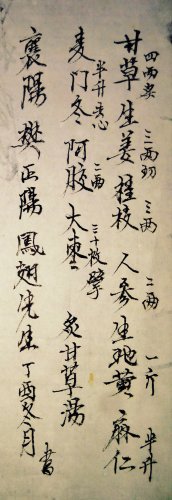 四两炙 三两切 三两 二两 一斤 半升
甘草生姜桂枝 人参生地黄 麻仁
半升去心 二两 三十枚擘
麦门冬 阿胶 大枣 炙甘草湯
襄陽 樊正陽 鳳翅先生 丁酉冬月 書